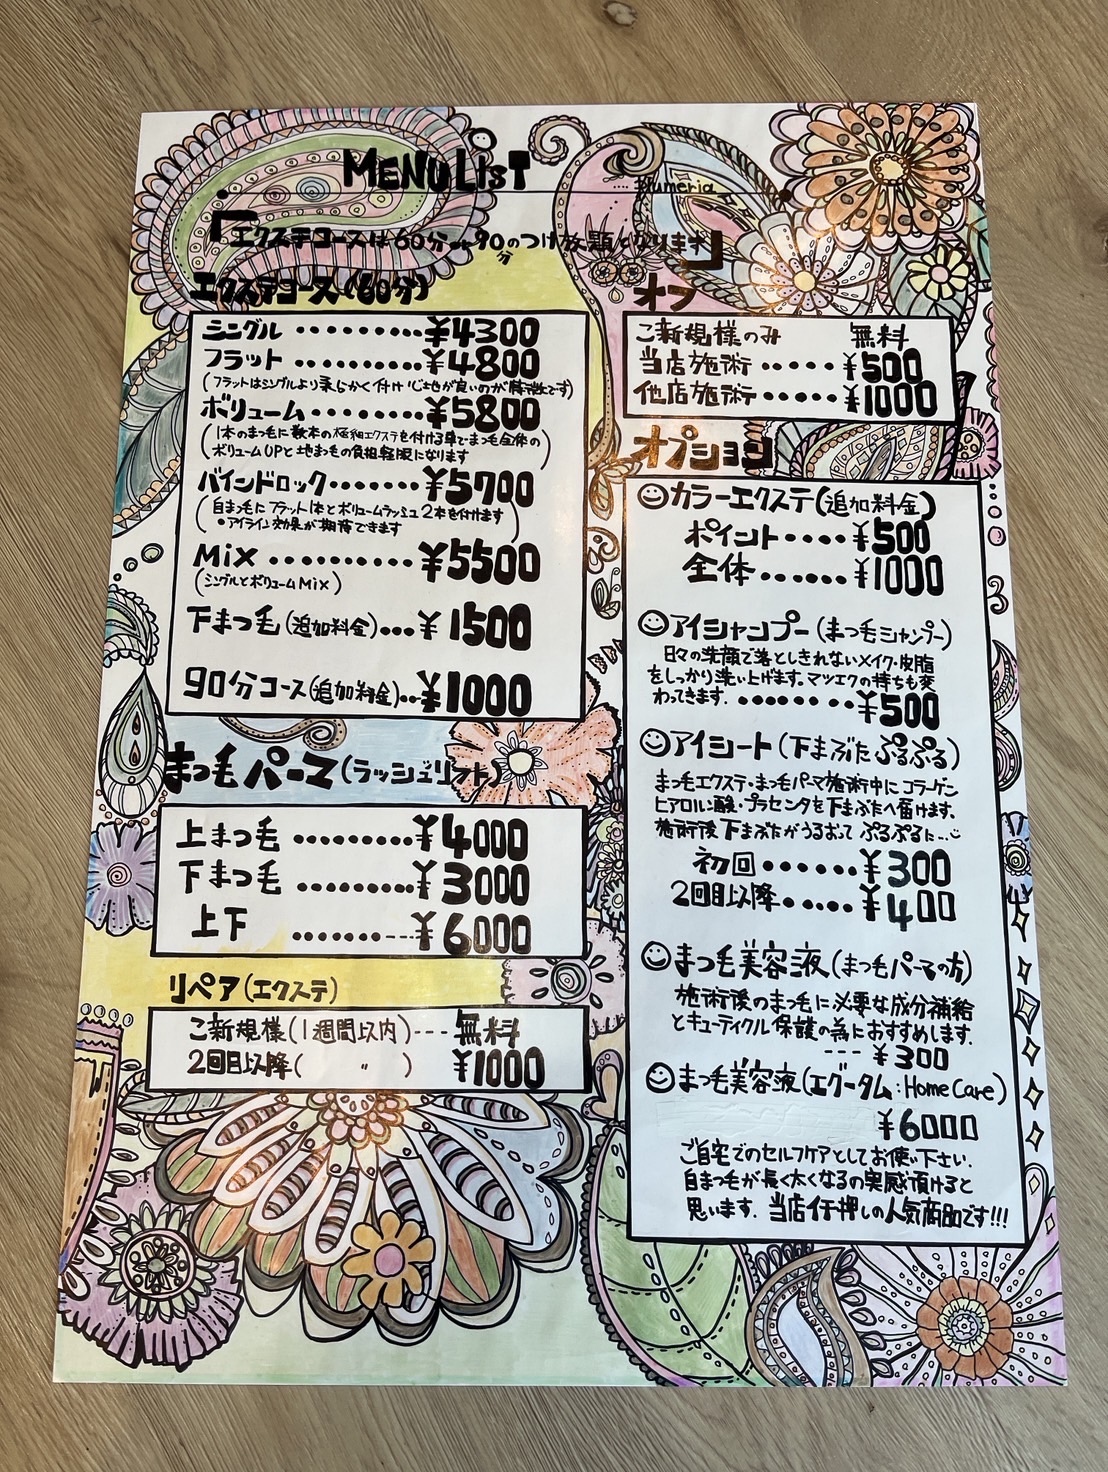 MENU LIST
Plumeria
「エクステコースは60分or90分のつけ放題となります」
エクステコース(60分)
シングル ・・・・・・・・・ ¥4300
フラット ・・・・・・・・・ ¥4800
(フラットはシングルより柔らかく付け心地が良いのが特徴です)
ボリューム ・・・・・・・・ ¥5800
(1本のまつ毛に数本の極細エクステを付ける事でまつ毛全体の
ボリュームUPと地まつ毛の負担軽減になります)
バインドロック ・・・・・・・ ¥5700
(自まつ毛にフラット1本とボリュームラッシュ2本を付けます
・アイライン効果が期待できます)
Mix ・・・・・・・・・・ ¥5500
(シングルとボリュームMix)
下まつ毛(追加料金)・・・¥1500
90分コース(追加料金)・・¥1000
まつ毛パーマ(ラッシュリフト)
上まつ毛 ・・・・・・・・・ ¥4000
下まつ毛 ・・・・・・・・・ ¥3000
上下 ・・・・・・・--- ¥6000
リペア(エクステ)
ご新規様(1週間以内)--- 無料
2回目以降( 〃 ) ¥1000
オフ
ご新規様のみ 無料
当店施術 ・・・・・ ¥500
他店施術 ・・・・・ ¥1000
オプション
☺カラーエクステ(追加料金)
ポイント・・・・¥500
全体・・・・・・¥1000
☺アイシャンプー(まつ毛シャンプー)
日々の洗顔で落としきれないメイク・皮脂
をしっかり洗い上げます。マツエクの持ちも変
わってきます。・・・・・・・・¥500
☺アイシート(下まぶたぷるぷる)
まつ毛エクステ・まつ毛パーマ施術中にコラーゲン
ヒアロルン酸・プラセンタを下まぶたへ届けます。
施術後下まぶたがうるおってぷるぷるに…☺
初回・・・・・・¥300
2回目以降・・・・・¥400
☺まつ毛美容液(まつ毛パーマの方)
施術後のまつ毛に必要な成分補給
とキューティクル保護の為におすすめします。
--- ¥300
☺まつ毛美容液(エグータム:Home Care)
¥6000
ご自宅でのセルフケアとしてお使い下さい。
自まつ毛が長く太くなるの実感頂けると
思います。当店イチ押しの人気商品です!!!